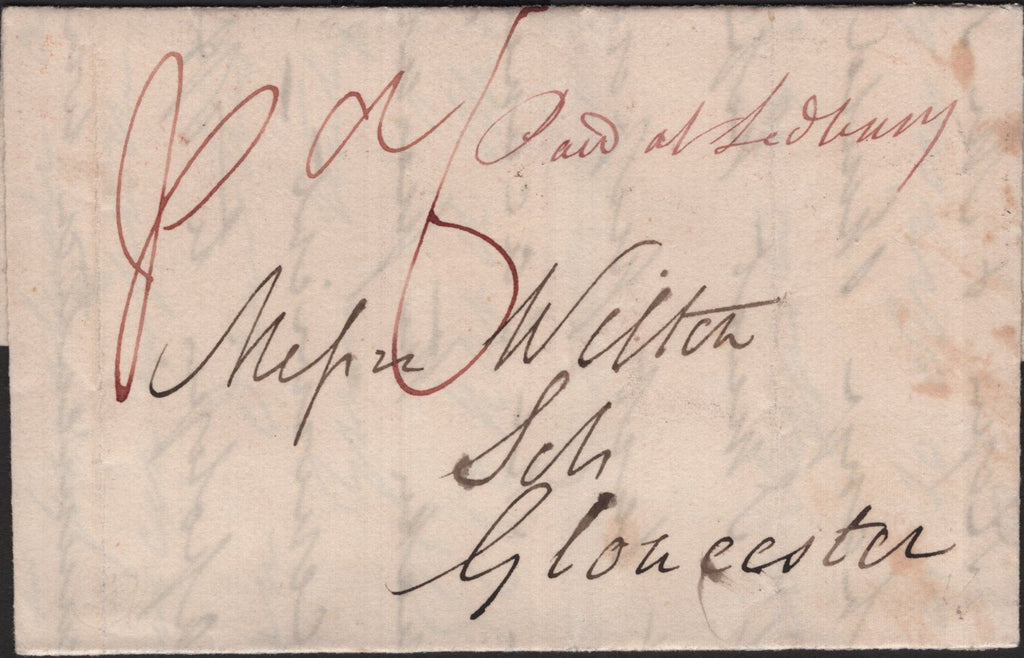 Pd 5 Paid at Ledbury
Messrs Wilton
Solrs
Gloucester